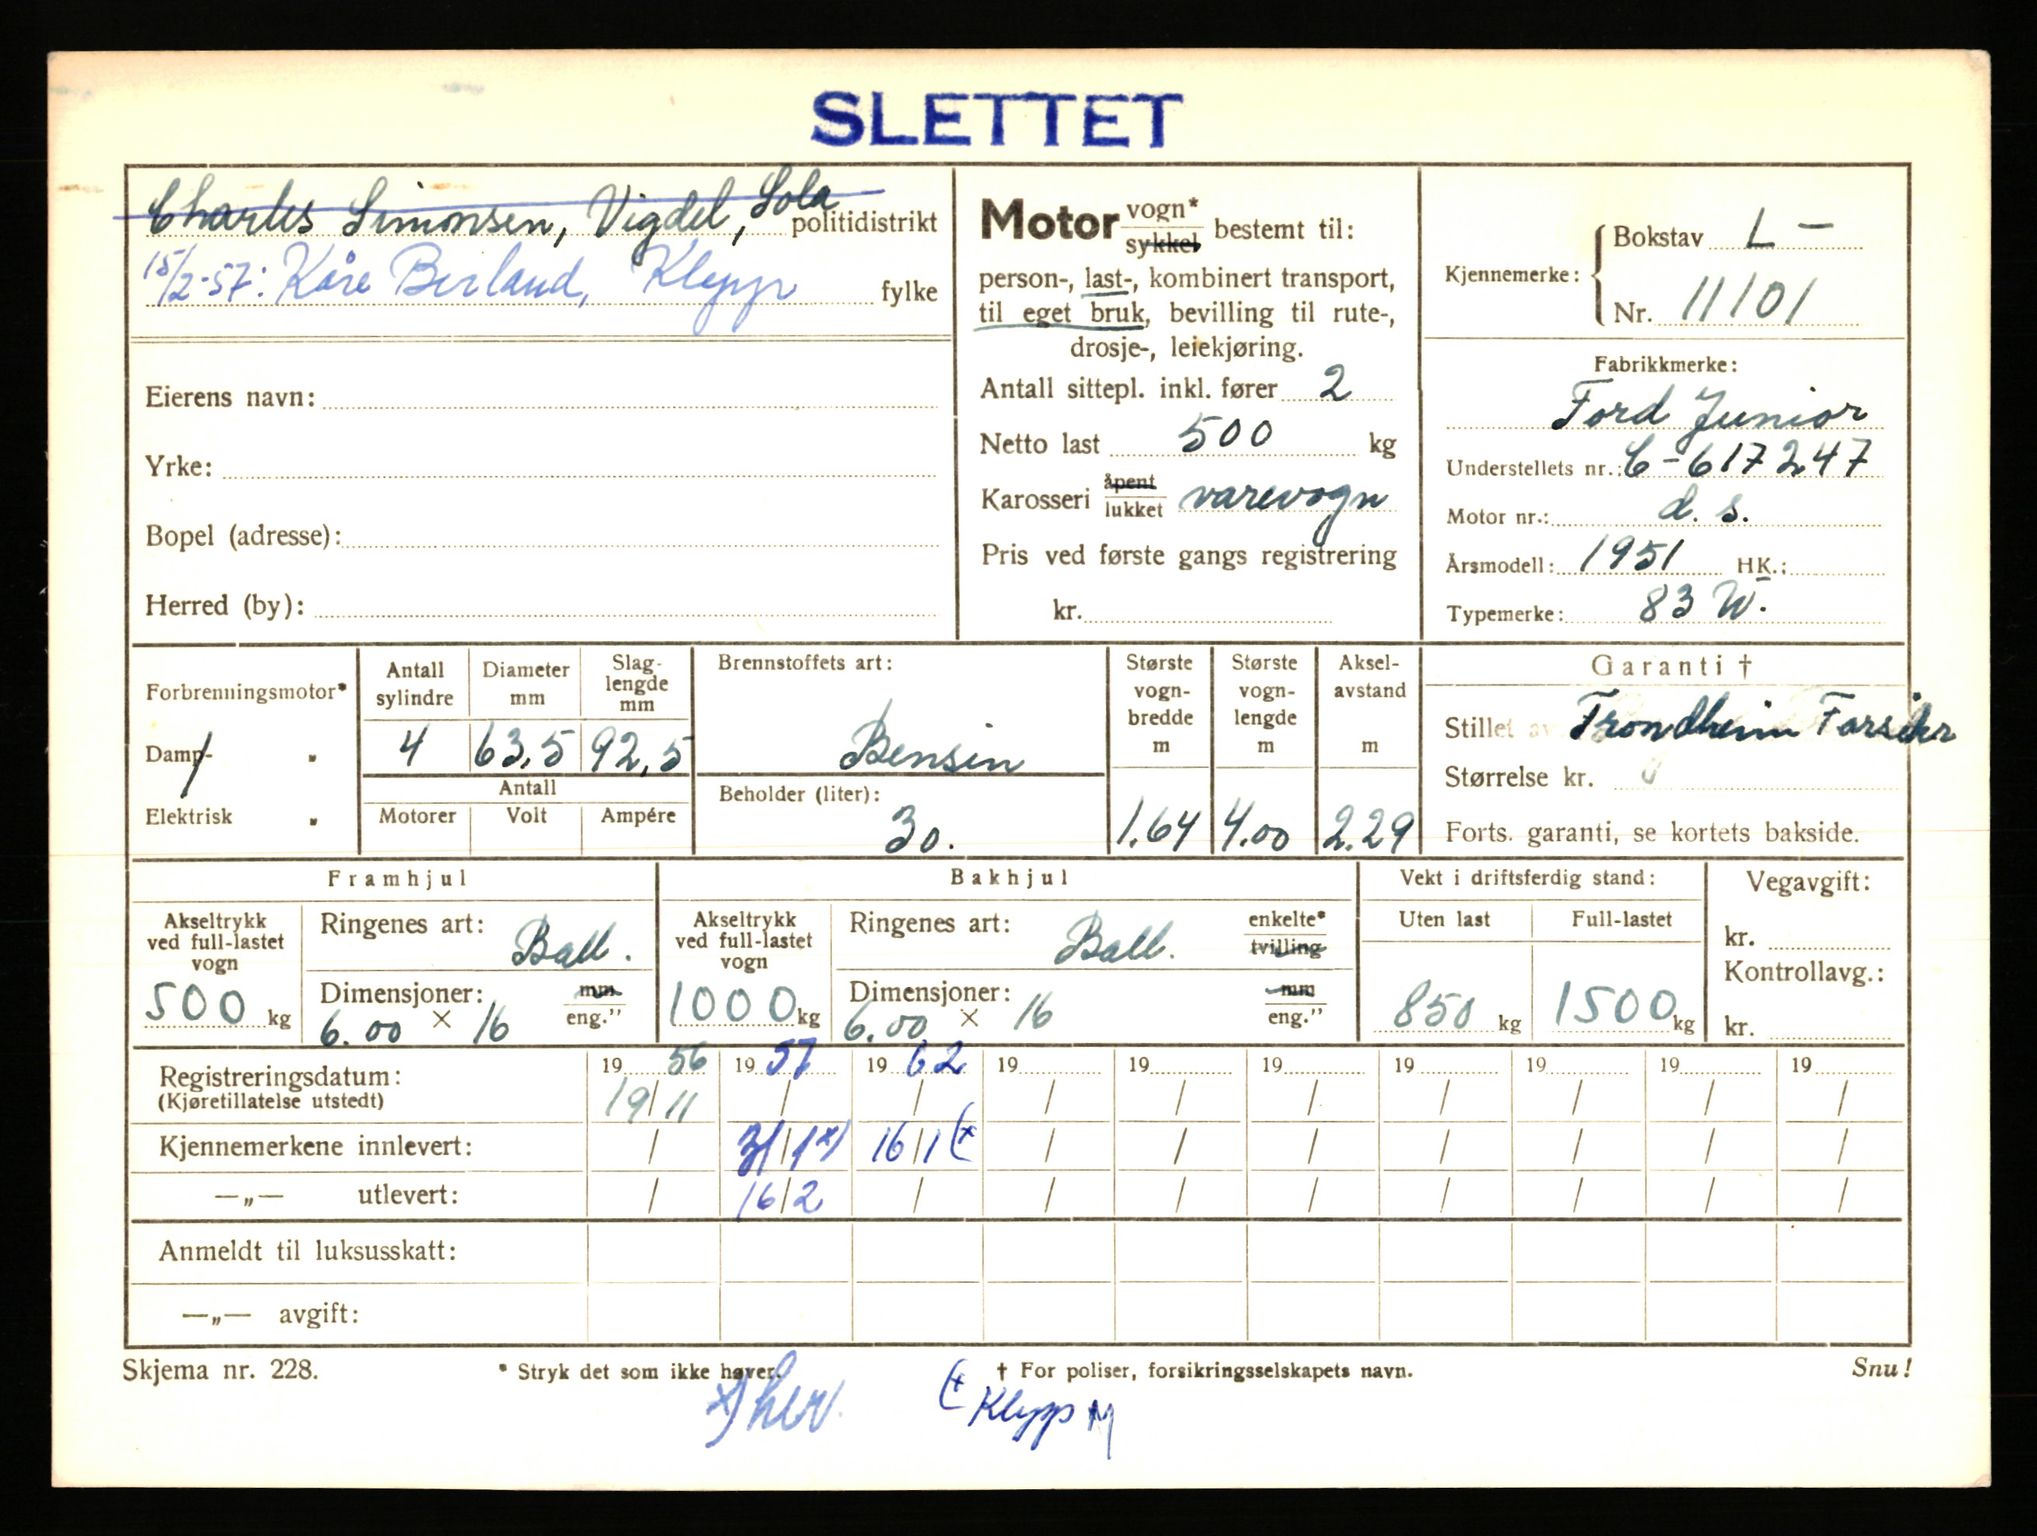 SLETTET
Charles Simonsen, Vigdel, Sola politidistrikt
15/2-57: Kåre Berland, Klepp fylke
Eierens navn:
Yrke:
Bopel (adresse):
Herred (by):
Motor vogn* sykkel bestemt til:
person-, last-, kombinert transport,
til eget bruk, bevilling til rute-,
drosje-, leiekjøring.
Antall sittepl. inkl. fører 2
Netto last 500 kg
Karosseri åpent lukket varevogn
Pris ved første gangs registrering
kr.
Kjennemerke: Bokstav L -
Nr. 11101
Fabrikkmerke:
Ford Junior
Understellets nr.: C-617247
Motor nr.: d. s.
Årsmodell: 1951 HK.:
Typemerke: 83 W.
Forbrenningsmotor*
Damp- "
Elektrisk "
Antall sylindre 4
Diameter mm 63,5
Slag-lengde mm 92,5
Antall
Motorer Volt Ampére
Brennstoffets art:
Bensin
Beholder (liter):
30.
Største vogn-bredde m 1.64
Største vogn-lengde m 4.00
Aksel-avstand m 2.29
Garanti †
Stillet av Trondheim Forsikr
Størrelse kr.
Forts. garanti, se kortets bakside.
Framhjul
Akseltrykk ved full-lastet vogn 500 kg
Ringenes art: Ball.
Dimensjoner: mm eng."
6.00 × 16
Bakhjul
Akseltrykk ved full-lastet vogn 1000 kg
Ringenes art: Ball. enkelte* tvilling
Dimensjoner: mm eng."
6.00 × 16
Vekt i driftsferdig stand:
Uten last Full-lastet
850 kg 1500 kg
Vegavgift:
kr.
Kontrollavg.:
kr.
Registreringsdatum: 19 56 19 57 19 62 19 19 19 19 19 19 19
(Kjøretillatelse utstedt) 19/11 / / / / / / / / /
Kjennemerkene innlevert: / 31/1 x) 16/1 (x / / / / / / /
—„— utlevert: / 16/2 / / / / / / / /
Anmeldt til luksusskatt:
—„— avgift:
Skjema nr. 228. * Stryk det som ikke høver. † For poliser, forsikringsselskapets navn. Snu!
x) her. (x Klepp